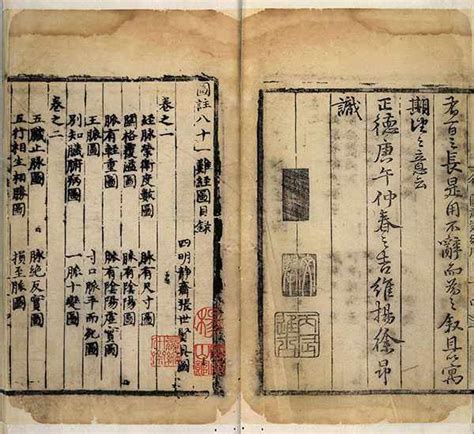 者百之長是用不辭而為之叙且以寓
期望之意云
正德庚午仲春之吉維揚徐昂
識
圖註八十一難經圖目錄
四明靜齋張世賢具圖
卷之一
經脉榮衛度數圖 脉有尺寸圖
關格覆溢圖 脉有陰陽圖
脉有輕重圖 脉有陰陽虛實圖
王脉圖 寸口脉平而死圖
別知臟腑病圖 一脉十變圖
卷之二
五臟止脉圖 脉絕反實圖
五行相生相勝圖 損至脉圖